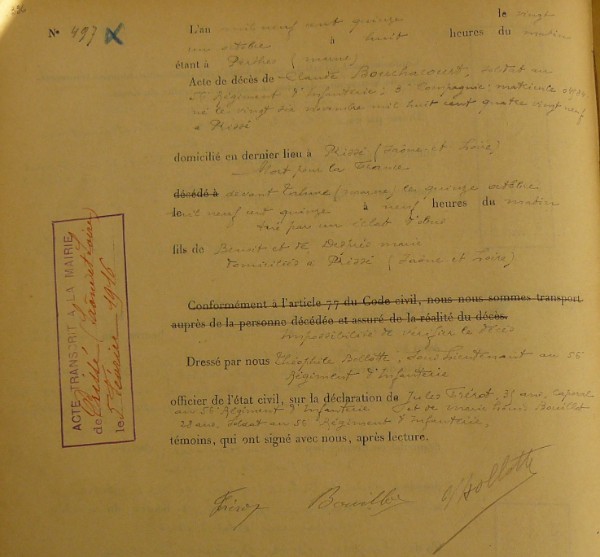 Nº 497
L'an mil neuf cent quinze le vingt
un octobre à huit heures du matin
étant à Perthes (marne)
Acte de décès de Claude Bouchacourt, soldat au
Régiment d'Infanterie, 3e Compagnie, matricule
né le vingt six novembre mil huit cent quatre vingt neuf
à Prissé
domicilié en dernier lieu à Prissé (Saône-et-Loire)
Mort pour la France
décédé à devant Tahure (marne) le quinze octobre
mil neuf cent quinze à neuf heures du matin
tué par un éclat d'obus
fils de Benoit et de
domiciliés à Prissé (Saône et Loire)
Conformément à l'article 77 du Code civil, nous nous sommes transport
auprès de la personne décédée et assuré de la réalité du décès.
Impossibilité de
Dressé par nous Théophile Bollotte, Sous Lieutenant au 56
Régiment d'Infanterie
officier de l'état civil, sur la déclaration de Jules Frérot, 35 ans, caporal
au 56e Régiment d'Infanterie et de Bouillot
28 ans, soldat au 56e Régiment d'Infanterie,
témoins, qui ont signé avec nous, après lecture.
ACTE TRANSCRIT A LA MAIRIE
de Prissé (Saône et Loire)
le 5 Février 1916